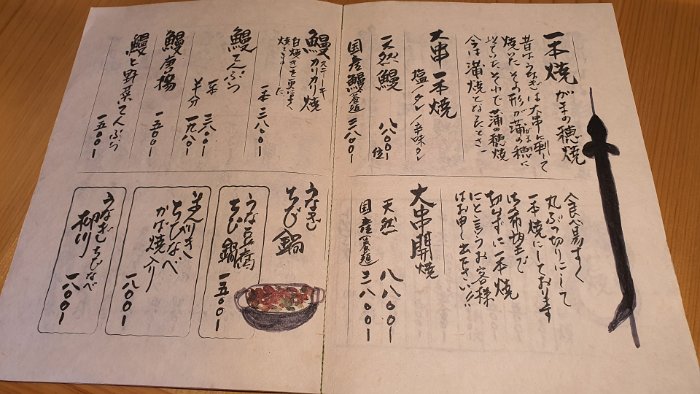 一本焼 がまの穂焼
昔はうなぎは大串に刺して
焼いた その形が蒲の穂に
似ていた それで蒲の穂焼
今は蒲焼となったとさ
大串 一本焼
塩/タレ/辛味タレ
天然鰻 八八〇〇位
国産鰻養殖 三八〇〇ー
鰻カリカリ焼
白焼きを更によく
焼きました
一本 三八〇〇ー
鰻天ぷら
一本 三八〇〇ー
半分 一九八〇ー
鰻唐揚 一五〇〇ー
鰻と野菜天ぷら 一五〇〇ー
食べ易すく
丸ぶつ切りにして
一本焼にしております
御希望で
切らずに一本焼
にと言うお客様
はお申し出下さい!!
大串開焼
天然 八八〇〇ー
国産養殖 三八〇〇ー
うなぎ
ちび鍋
うな豆腐
ちび鍋 一五〇〇ー
ちびなべ
かば焼入 一八〇〇ー
うなぎちびなべ
柳川 一八〇〇ー